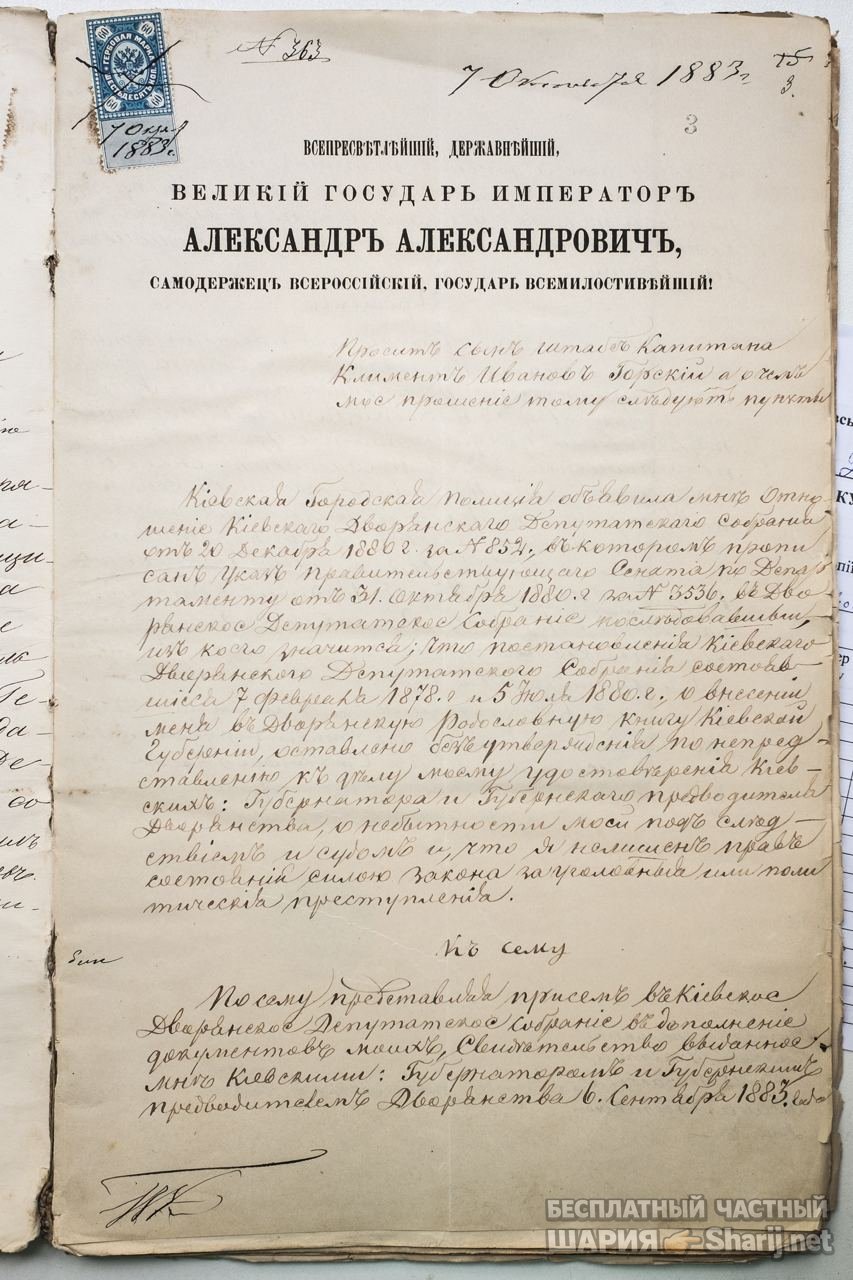 № 363
7 Октября 1883 г.
15
3.
3
ГЕРБОВАЯ МАРКА
60 60
ШЕСТЬДЕСЯТЪ КОП.
60 60
7 Окт.
1883 г.
ВСЕПРЕСВѢТЛѢЙШІЙ, ДЕРЖАВНѢЙШІЙ,
ВЕЛИКІЙ ГОСУДАРЬ ИМПЕРАТОРЪ
АЛЕКСАНДРЪ АЛЕКСАНДРОВИЧЪ,
САМОДЕРЖЕЦЪ ВСЕРОССІЙСКІЙ, ГОСУДАРЬ ВСЕМИЛОСТИВѢЙШІЙ!
Проситъ сынъ штабсъ Капитана
Климентъ Ивановъ Горскій а о чемъ
мое прошеніе тому слѣдуютъ пункты
Кіевская Городская полиція объявила мнѣ Отно-
шеніе Кіевскаго Дворянскаго Депутатскаго Собранія
отъ 20 Декабря 1880 г. за № 852, въ которомъ пропи
санъ Указъ Правительствующаго Сената по Депар
таменту отъ 31. Октября 1880 г за № 3536. въ Дво-
рянское Депутатское Собраніе послѣдовавшій,
изъ коего значится; что постановленія Кіевскаго
Дворянскаго Депутатскаго Собранія состояв-
шіеся 7 Февраля 1878. г и 5 Іюля 1880. г., о внесеніи
меня въ Дворянскую Родословную книгу Кіевской
Губерніи, оставлено безъ утвержденія по непред-
ставленію къ дѣлу моему удостовѣренія Кіев-
скихъ: Губернатора и Губернскаго предводителя
Дворянства, о небытности моей подъ слѣд-
ствіемъ и судомъ и, что я не лишенъ правъ
состояній силою закона за уголовныя или поли
тическія преступленія.
Къ сему
По сему представляя присемъ въ Кіевское
Дворянское Депутатское Собраніе въ дополненіе
документовъ моихъ, Свидѣтельство выданное
мнѣ Кіевскими: Губернаторомъ и Губернскимъ
предводителемъ Дворянства 6. Сентября 1883. года
БЕСПЛАТНЫЙ ЧАСТНЫЙ
ШАРИЯ Sharij.net